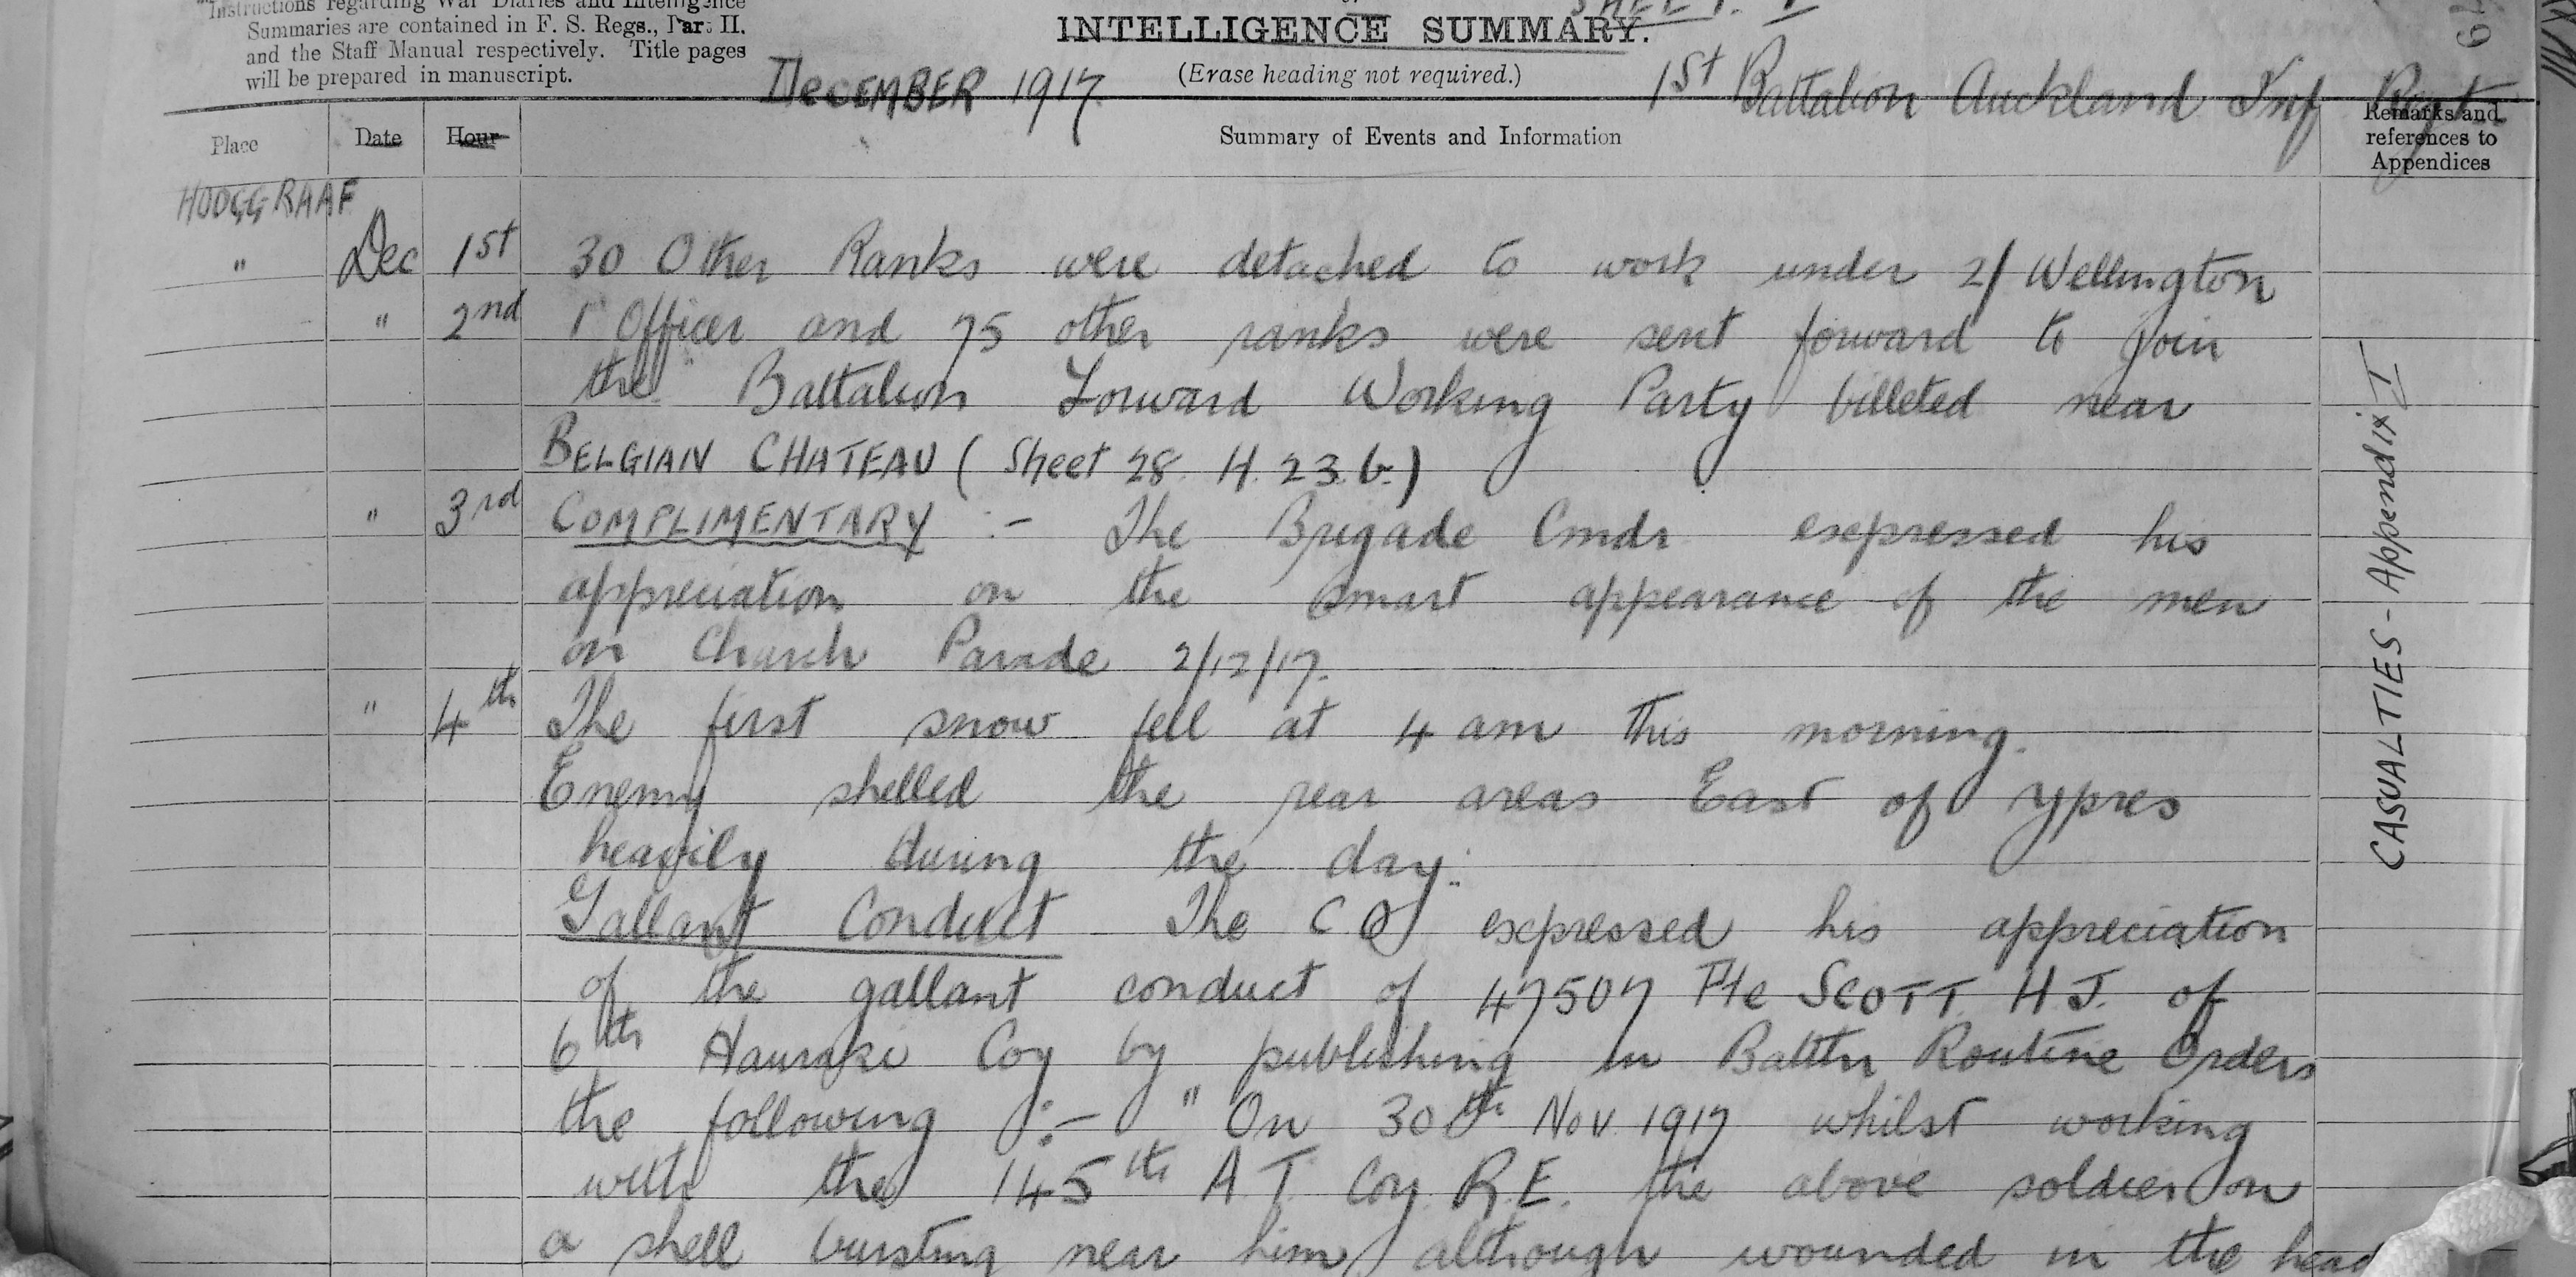 "Instructions regarding War Diaries and Intelligence
Summaries are contained in F. S. Regs., Part II.
and the Staff Manual respectively. Title pages
will be prepared in manuscript.
SHEET. I
INTELLIGENCE SUMMARY.
(Erase heading not required.)
DECEMBER 1917
1st Battalion Auckland Inf Regt
Place Date Hour Summary of Events and Information Remarks and references to Appendices
HOOGGRAAF
" Dec 1st 30 Other Ranks were detached to work under 2/ Wellington
" 2nd 1 Officer and 75 other ranks were sent forward to join
the Battalion Forward Working Party billeted near
BELGIAN CHATEAU ( Sheet 28. H. 23. b.)
" 3rd COMPLIMENTARY :- The Brigade Cmdr expressed his
appreciation on the smart appearance of the men
on Church Parade 2/12/17.
" 4th The first snow fell at 4 am this morning.
Enemy shelled the rear areas East of Ypres
heavily during the day.
Gallant Conduct The C.O expressed his appreciation
of the gallant conduct of 47507 Pte SCOTT. H.J. of
6th Hauraki Coy by publishing in Battn Routine Orders
the following :- " On 30th Nov 1917 whilst working
with the 145th A.T. Coy. R.E. the above soldier on
a shell bursting near him, although wounded in the head
CASUALTIES - Appendix I